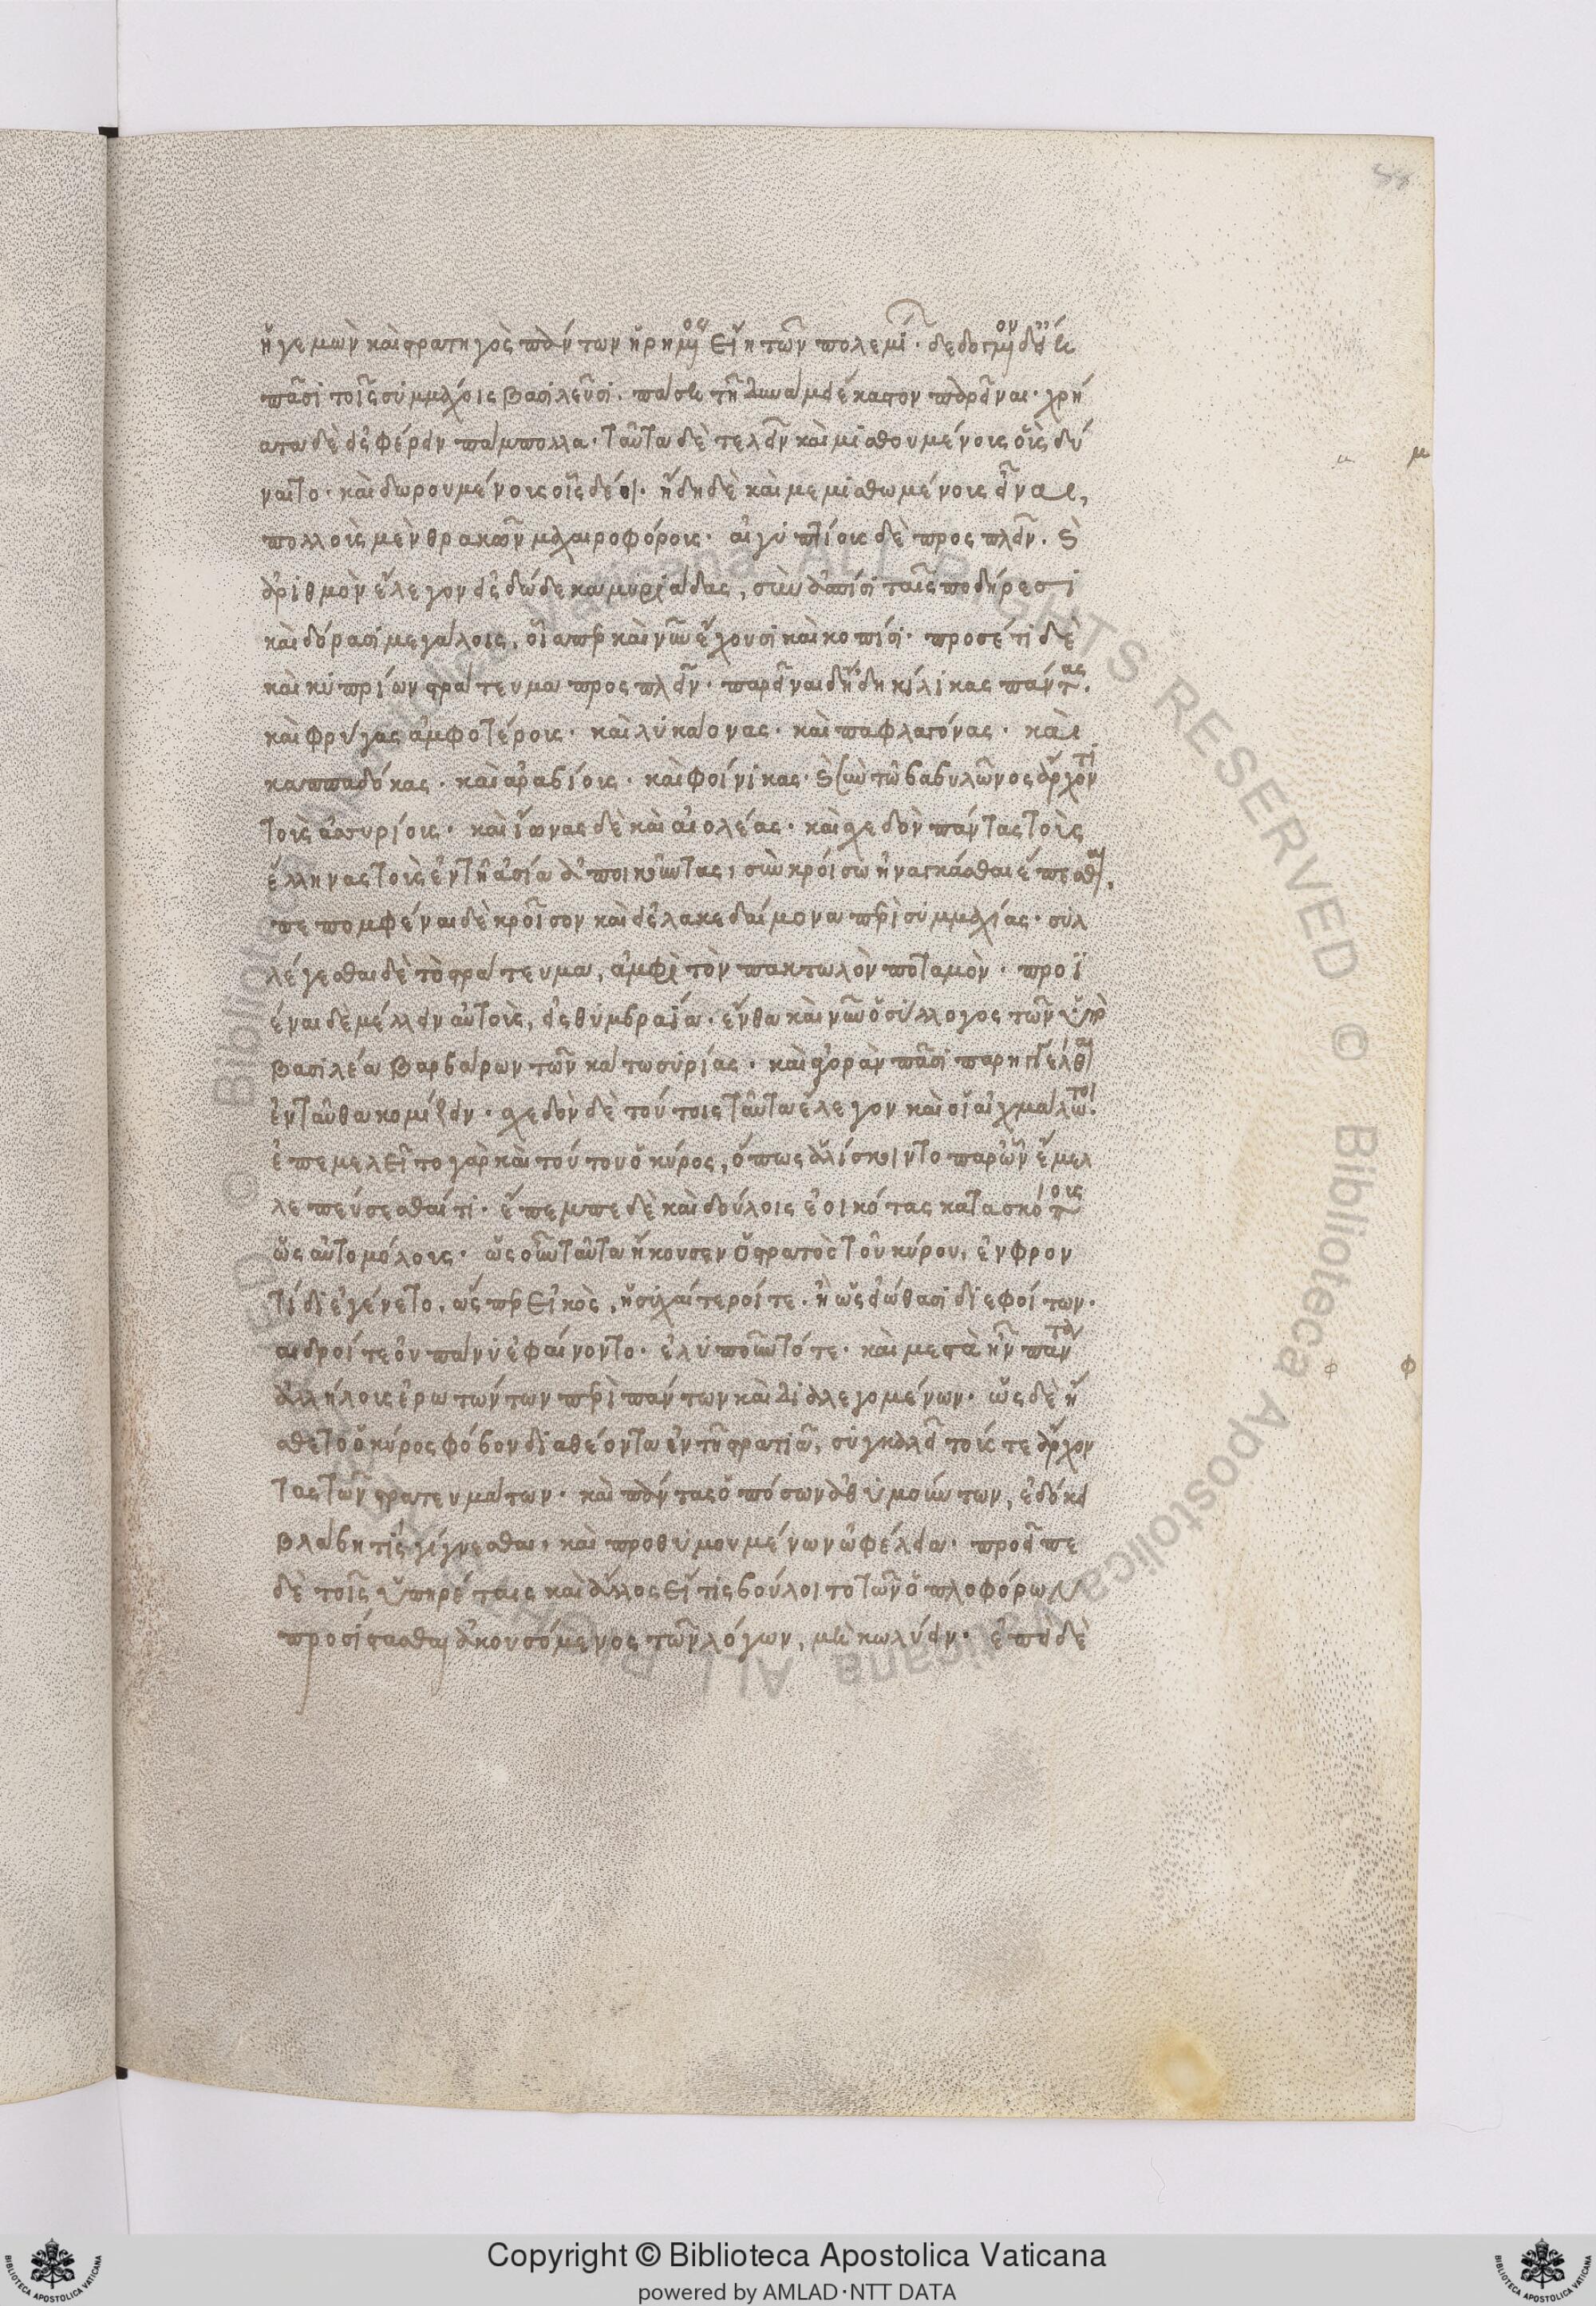 ἡγεμὼν καὶ στρατηγὸς πάντων ἡρημένος εἴη τῶν πολεμί· δεδογμένον δ' εἴη
πᾶσι τοῖς συμμάχοις βασιλεῦσι. πάση τῆ δυνάμει ἕκαστον παρεῖναι· χρή
ματα δὲ εἰσφέρειν πάμπολλα· ταῦτα δὲ τελεῖν καὶ μισθουμένους οὓς δύ
ναιντο· καὶ δωρουμένους οἷς δέοι· ἤδη δὲ καὶ μεμισθωμένους εἶναι,
πολλοὺς μὲν θρακῶν μαχαιροφόρους· αἰγυπτίους δὲ προςπλεῖν. καὶ
ἀριθμὸν ἔλεγον εἰς δώδεκα μυριάδας, σὺν ἀσπίσι ταῖς ποδήρεσι
καὶ δόρασι μεγάλοις, οἷάπερ καὶ νῦν ἔχουσι καὶ κοπίσι· προσέτι δὲ
καὶ κυπρίων στράτευμα προςπλεῖν· παρεῖναι δ' ἤδη κίλικας πάντας.
καὶ φρύγας ἀμφοτέρους· καὶ λυκάονας· καὶ παφλαγόνας· καὶ
καππαδόκας· καὶ ἀραβίους· καὶ φοίνικας· καὶ σὺν τῶ βαβυλῶνος ἄρχοντι
τοὺς ἀσσυρίους· καὶ ἴωνας δὲ καὶ αἰολέας· καὶ σχεδὸν πάντας τοὺς
ἕλληνας τοὺς ἐν τῆ ἀσία ἀποικοῦντας, σὺν κροίσω ἠναγκάσθαι ἕπεσθαι.
πεπομφέναι δὲ κροῖσον καὶ εἰς λακεδαίμονα περὶ συμμαχίας· συλ
λέγεσθαι δὲ τὸ στράτευμα, ἀμφὶ τὸν πακτωλὸν ποταμὸν· προϊ
έναι δὲ μέλλειν αὐτοὺς, εἰς θύμβραρα· ἔνθα καὶ νῦν ὁ σύλλογος τῶν ὑπὸ
βασιλέα βαρβάρων τῶν κάτω συρίας· καὶ ἀγορὰν πᾶσι παρηγγέλθαι
ἐνταῦθα κομίζειν· σχεδὸν δὲ τούτοις ταῦτα ἔλεγον καὶ οἱ αἰχμάλωτοι·
ἐπεμελεῖτο γὰρ καὶ τούτου ὁ κύρος, ὅπως ἁλίσκοιντο παρ' ὧν ἔμελ
λε πεύσεσθαί τι· ἔπεμπε δὲ καὶ δούλοις ἐοικότας κατασκόπους
ὡς αὐτομόλους· ὡς οὖν ταῦτα ἤκουσεν ὁ στρατὸς τοῦ κύρου, ἐν φρον
τίδι ἐγένετο, ὥσπερ εἰκὸς, ἡσυχαίτεροί τε. ἢ ὡς εἰώθασι διεφοίτων·
φαιδροί τε οὐ πάνυ ἐφαίνοντο· ἐκυκλοῦντό τε· καὶ μεστὰ ἦν πάντα
ἀλλήλους ἐρωτώντων περὶ πάντων καὶ διαλεγομένων· ὡς δὲ ἤ
σθετο ὁ κύρος φόβον διαθέοντα ἐν τῆ στρατιᾶ, συγκαλεῖ τούς τε ἄρχον
τας τῶν στρατευμάτων· καὶ πάντας ὁπόσων ἀθυμούντων, ἐδόκει
βλάβη τις γίγνεσθαι, καὶ προθυμουμένων ὠφέλεια· προεῖπε
δὲ τοῖς ὑπηρέταις καὶ ἄλλος εἴ τις βούλοιτο τῶν ὁπλοφόρων
προσίστασθαι ἀκουσόμενος τῶν λόγων, μὴ κωλύειν· ἐπεὶ δὲ
μ
φ
Copyright © Biblioteca Apostolica Vaticana
powered by AMLAD·NTT DATA